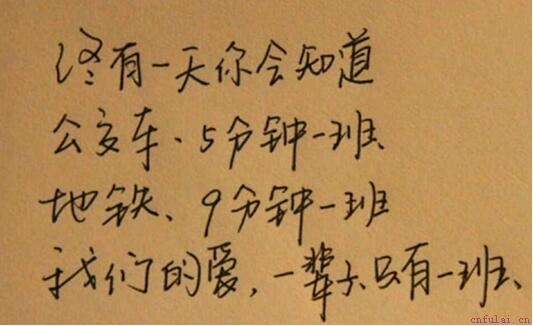 终有一天你会知道
公交车、5分钟一班、
地铁、9分钟一班
我们的爱,一辈子只有一班、
cnfulai.cn